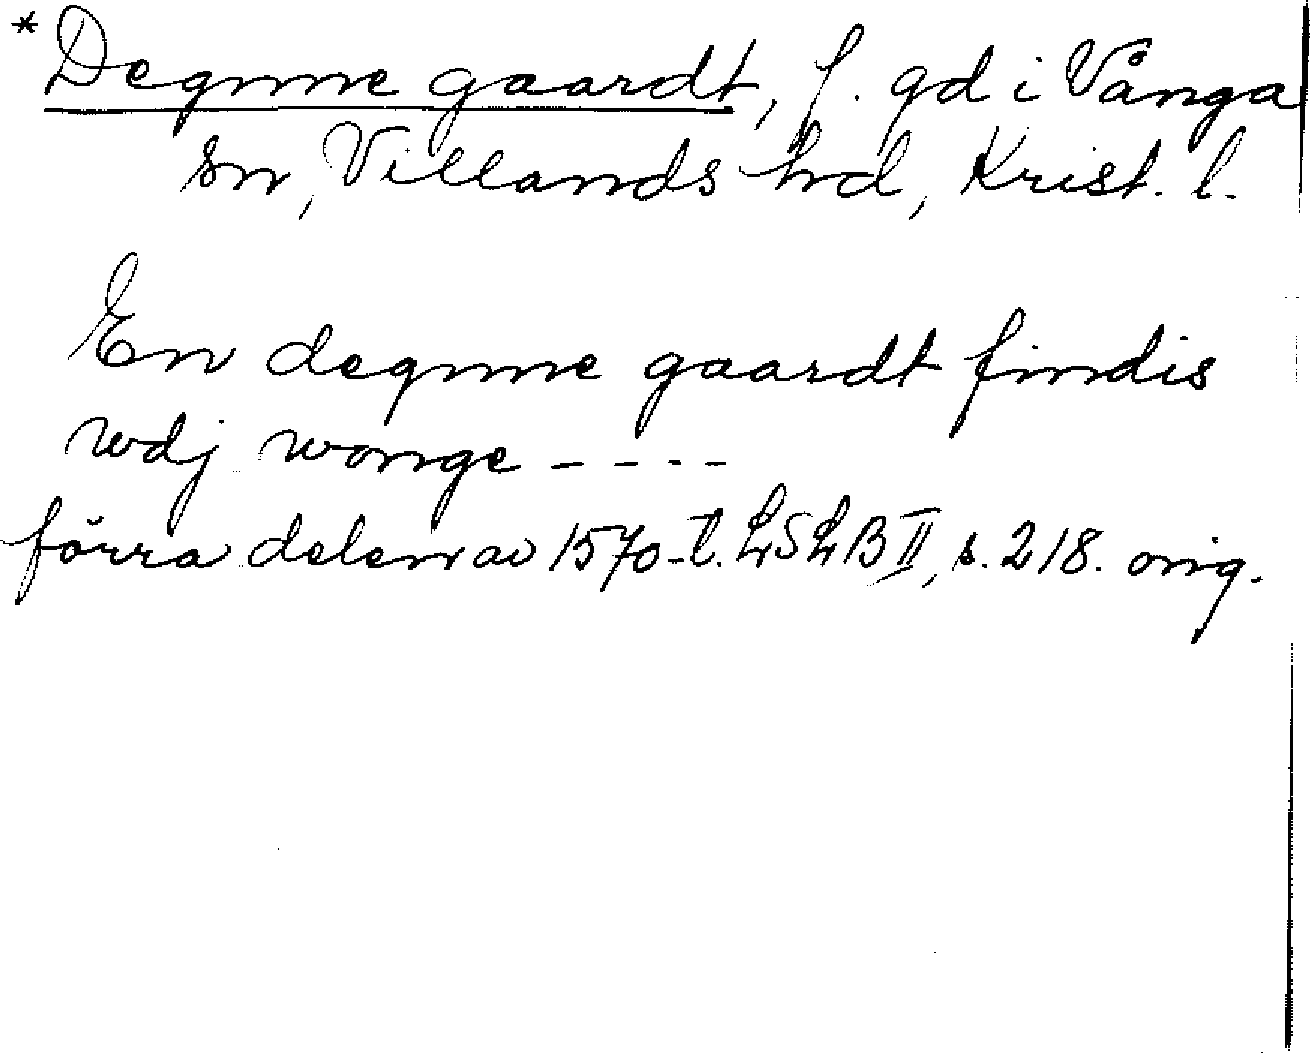 *Degnne gaardt, f. gd i Vånga
sn, Villands hd, Krist. l.
En degnne gaardt findis
wdj wonge - - - -
förra delen av 1570-t. LSLB II, s. 218. orig.